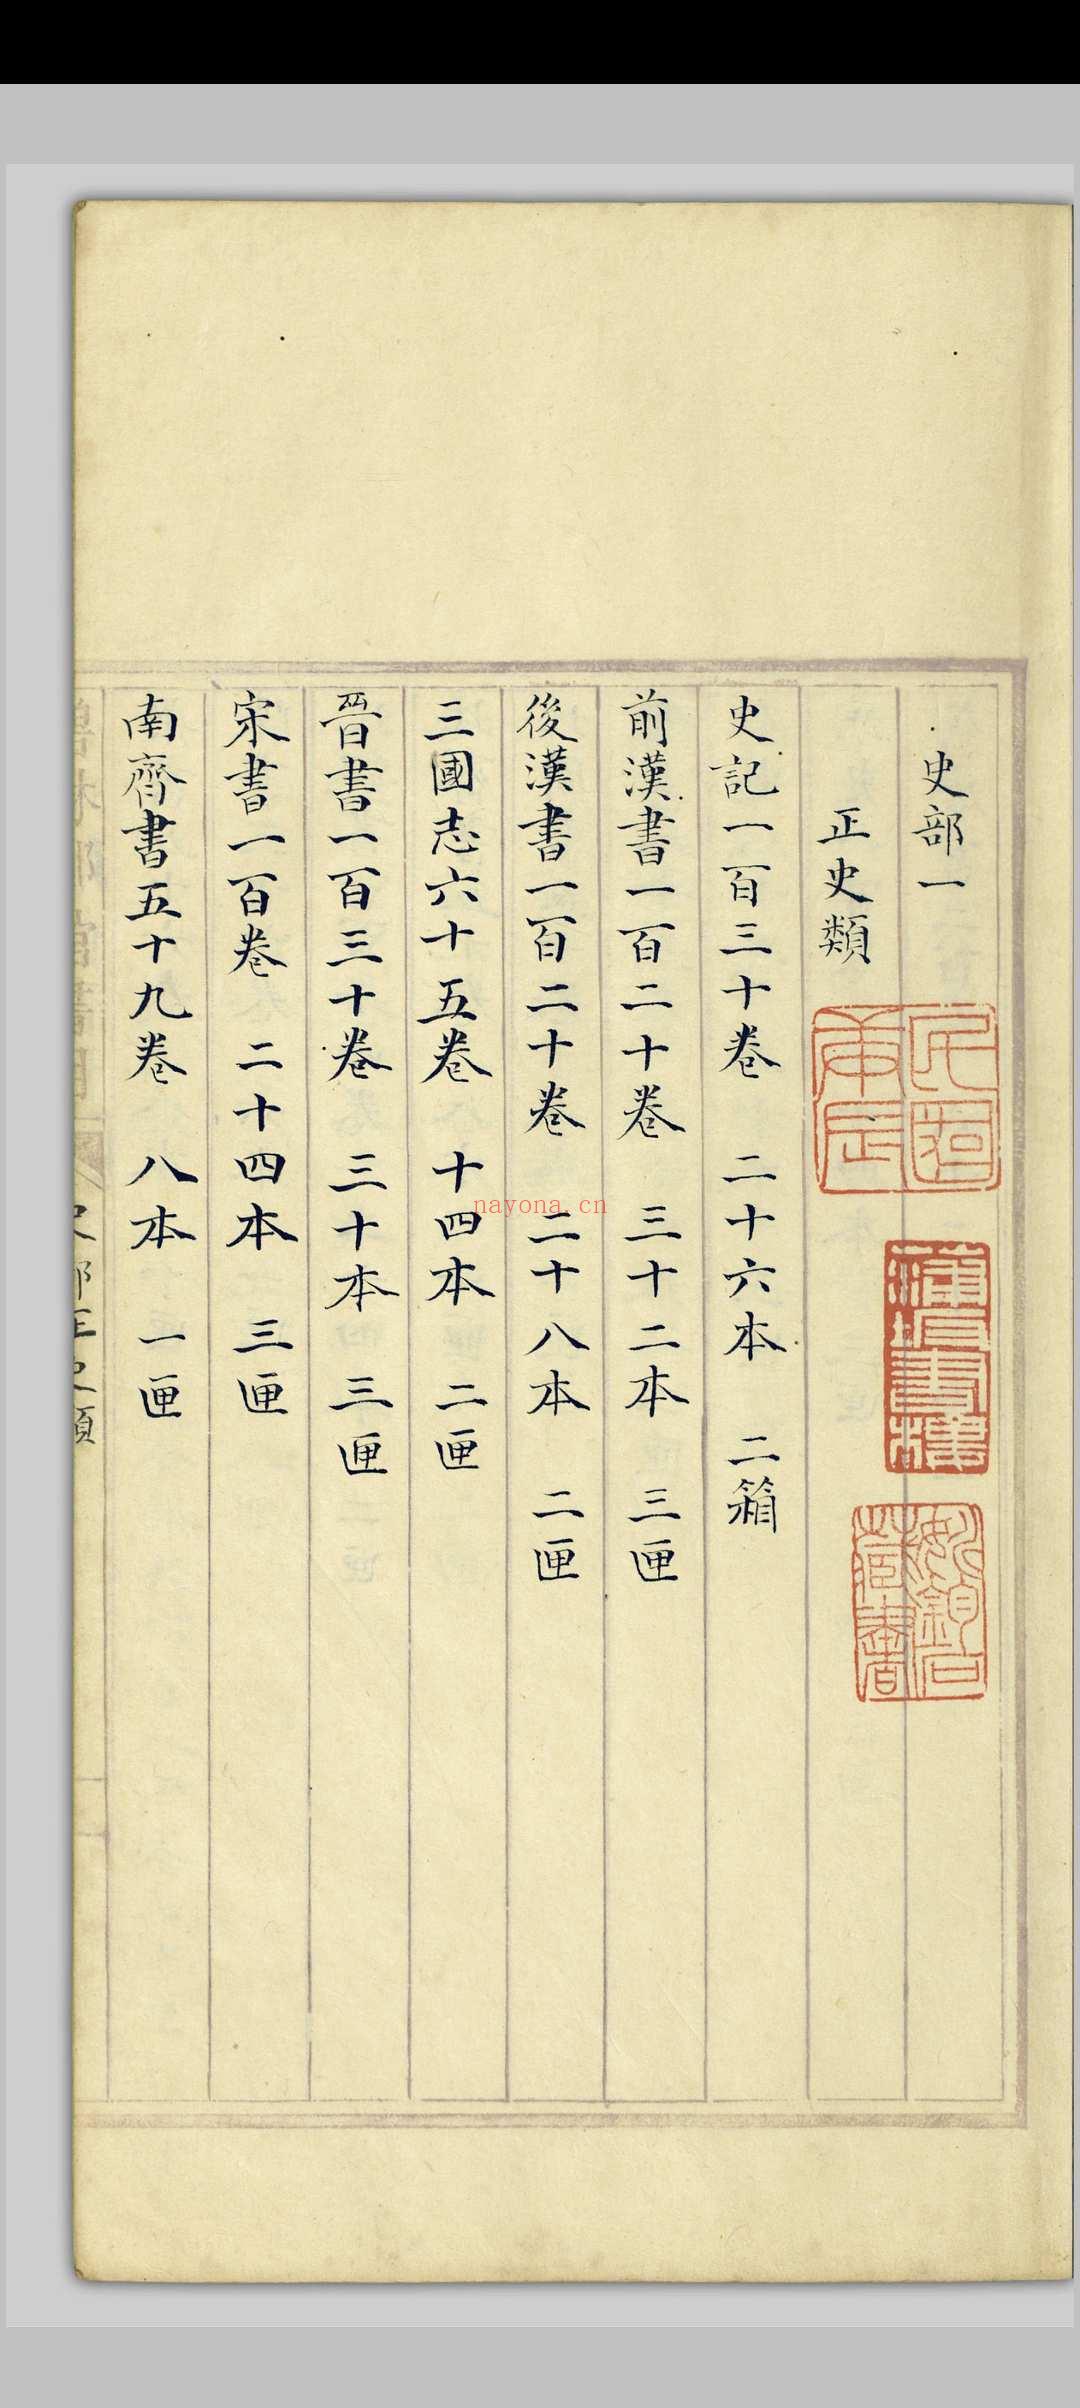 史部一
正史類
史記一百三十卷　二十六本　二箱
前漢書一百二十卷　三十二本　三匣
後漢書一百二十卷　二十八本　二匣
三國志六十五卷　十四本　二匣
晉書一百三十卷　三十本　三匣
宋書一百卷　二十四本　三匣
南齊書五十九卷　八本　一匣
史部正史類
nayona.cn